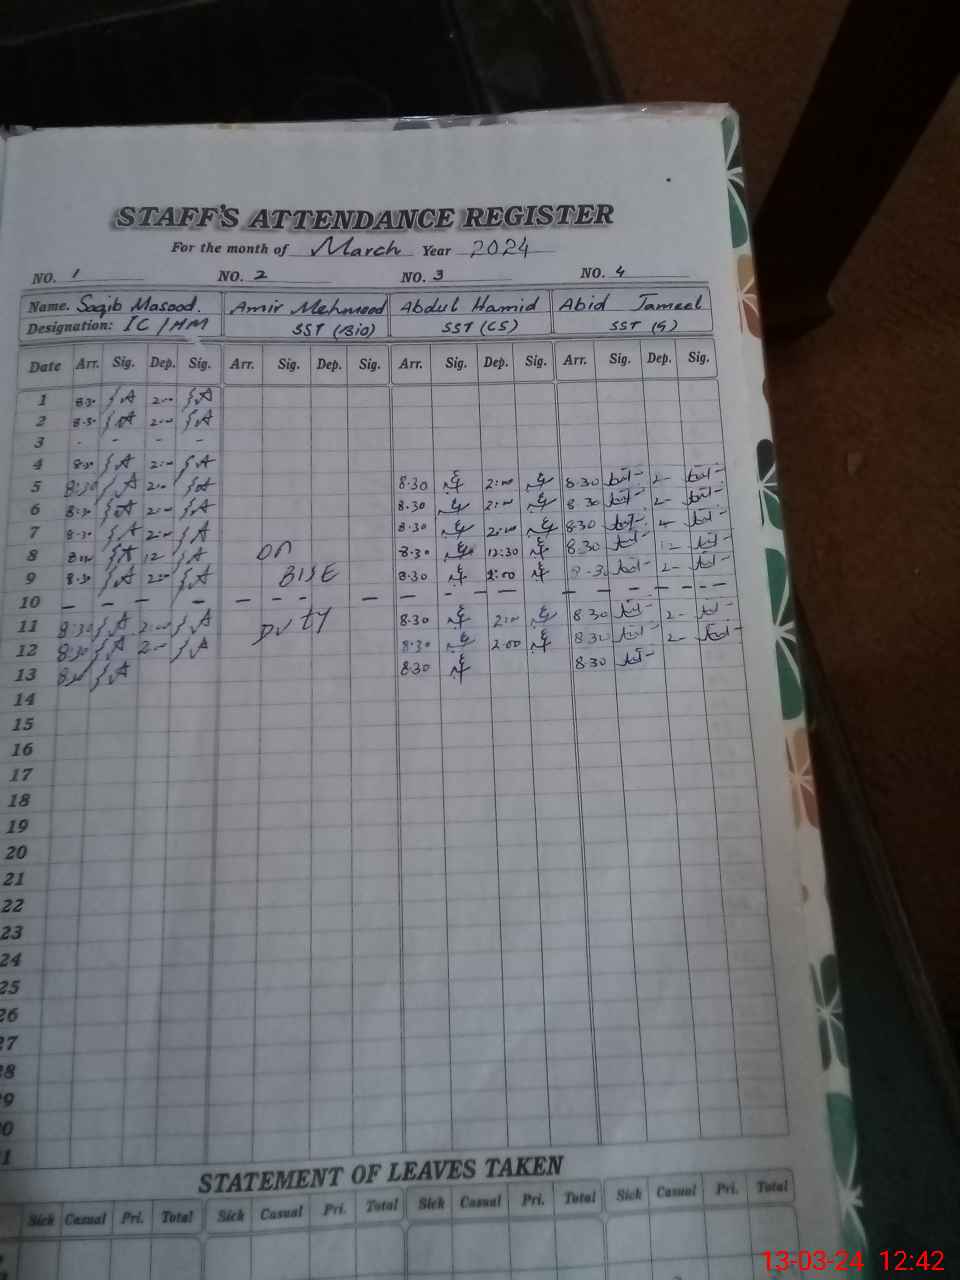 STAFF'S ATTENDANCE REGISTER
For the month of March Year 2024
NO. 1 NO. 2 NO. 3 NO. 4
Name. Saqib Masood. Amir Mehmood Abdul Hamid Abid Jameel
Designation: IC / HM SST (Bio) SST (CS) SST (G)
Date Arr. Sig. Dep. Sig. Arr. Sig. Dep. Sig. Arr. Sig. Dep. Sig. Arr. Sig. Dep. Sig.
1 8.30 2:00
2 8.30 2:00
3 - - - -
4 8.30 2:00
5 8:30 2:00 8.30 2:00 8.30 2-
6 8:30 2:00 8.30 2:00 8.30 2-
7 8.30 2:00 8.30 2:00 8.30
8 12 on 8.30 12:30 8.30 12-
9 8.30 2:00 BISE 8.30 2:00 8.30 2-
10 - - - - - - - - - - - - - -
11 8:30 2:00 Duty 8.30 2:00 8.30 2-
12 8:30 2- 8.30 2.00 8.30 2-
13 8.30 8.30 8.30
14
15
16
17
18
19
20
21
22
23
24
25
26
27
8
9
0
1
STATEMENT OF LEAVES TAKEN
Sick Casual Pri. Total Sick Casual Pri. Total Sick Casual Pri. Total Sick Casual Pri. Total
13-03-24 12:42